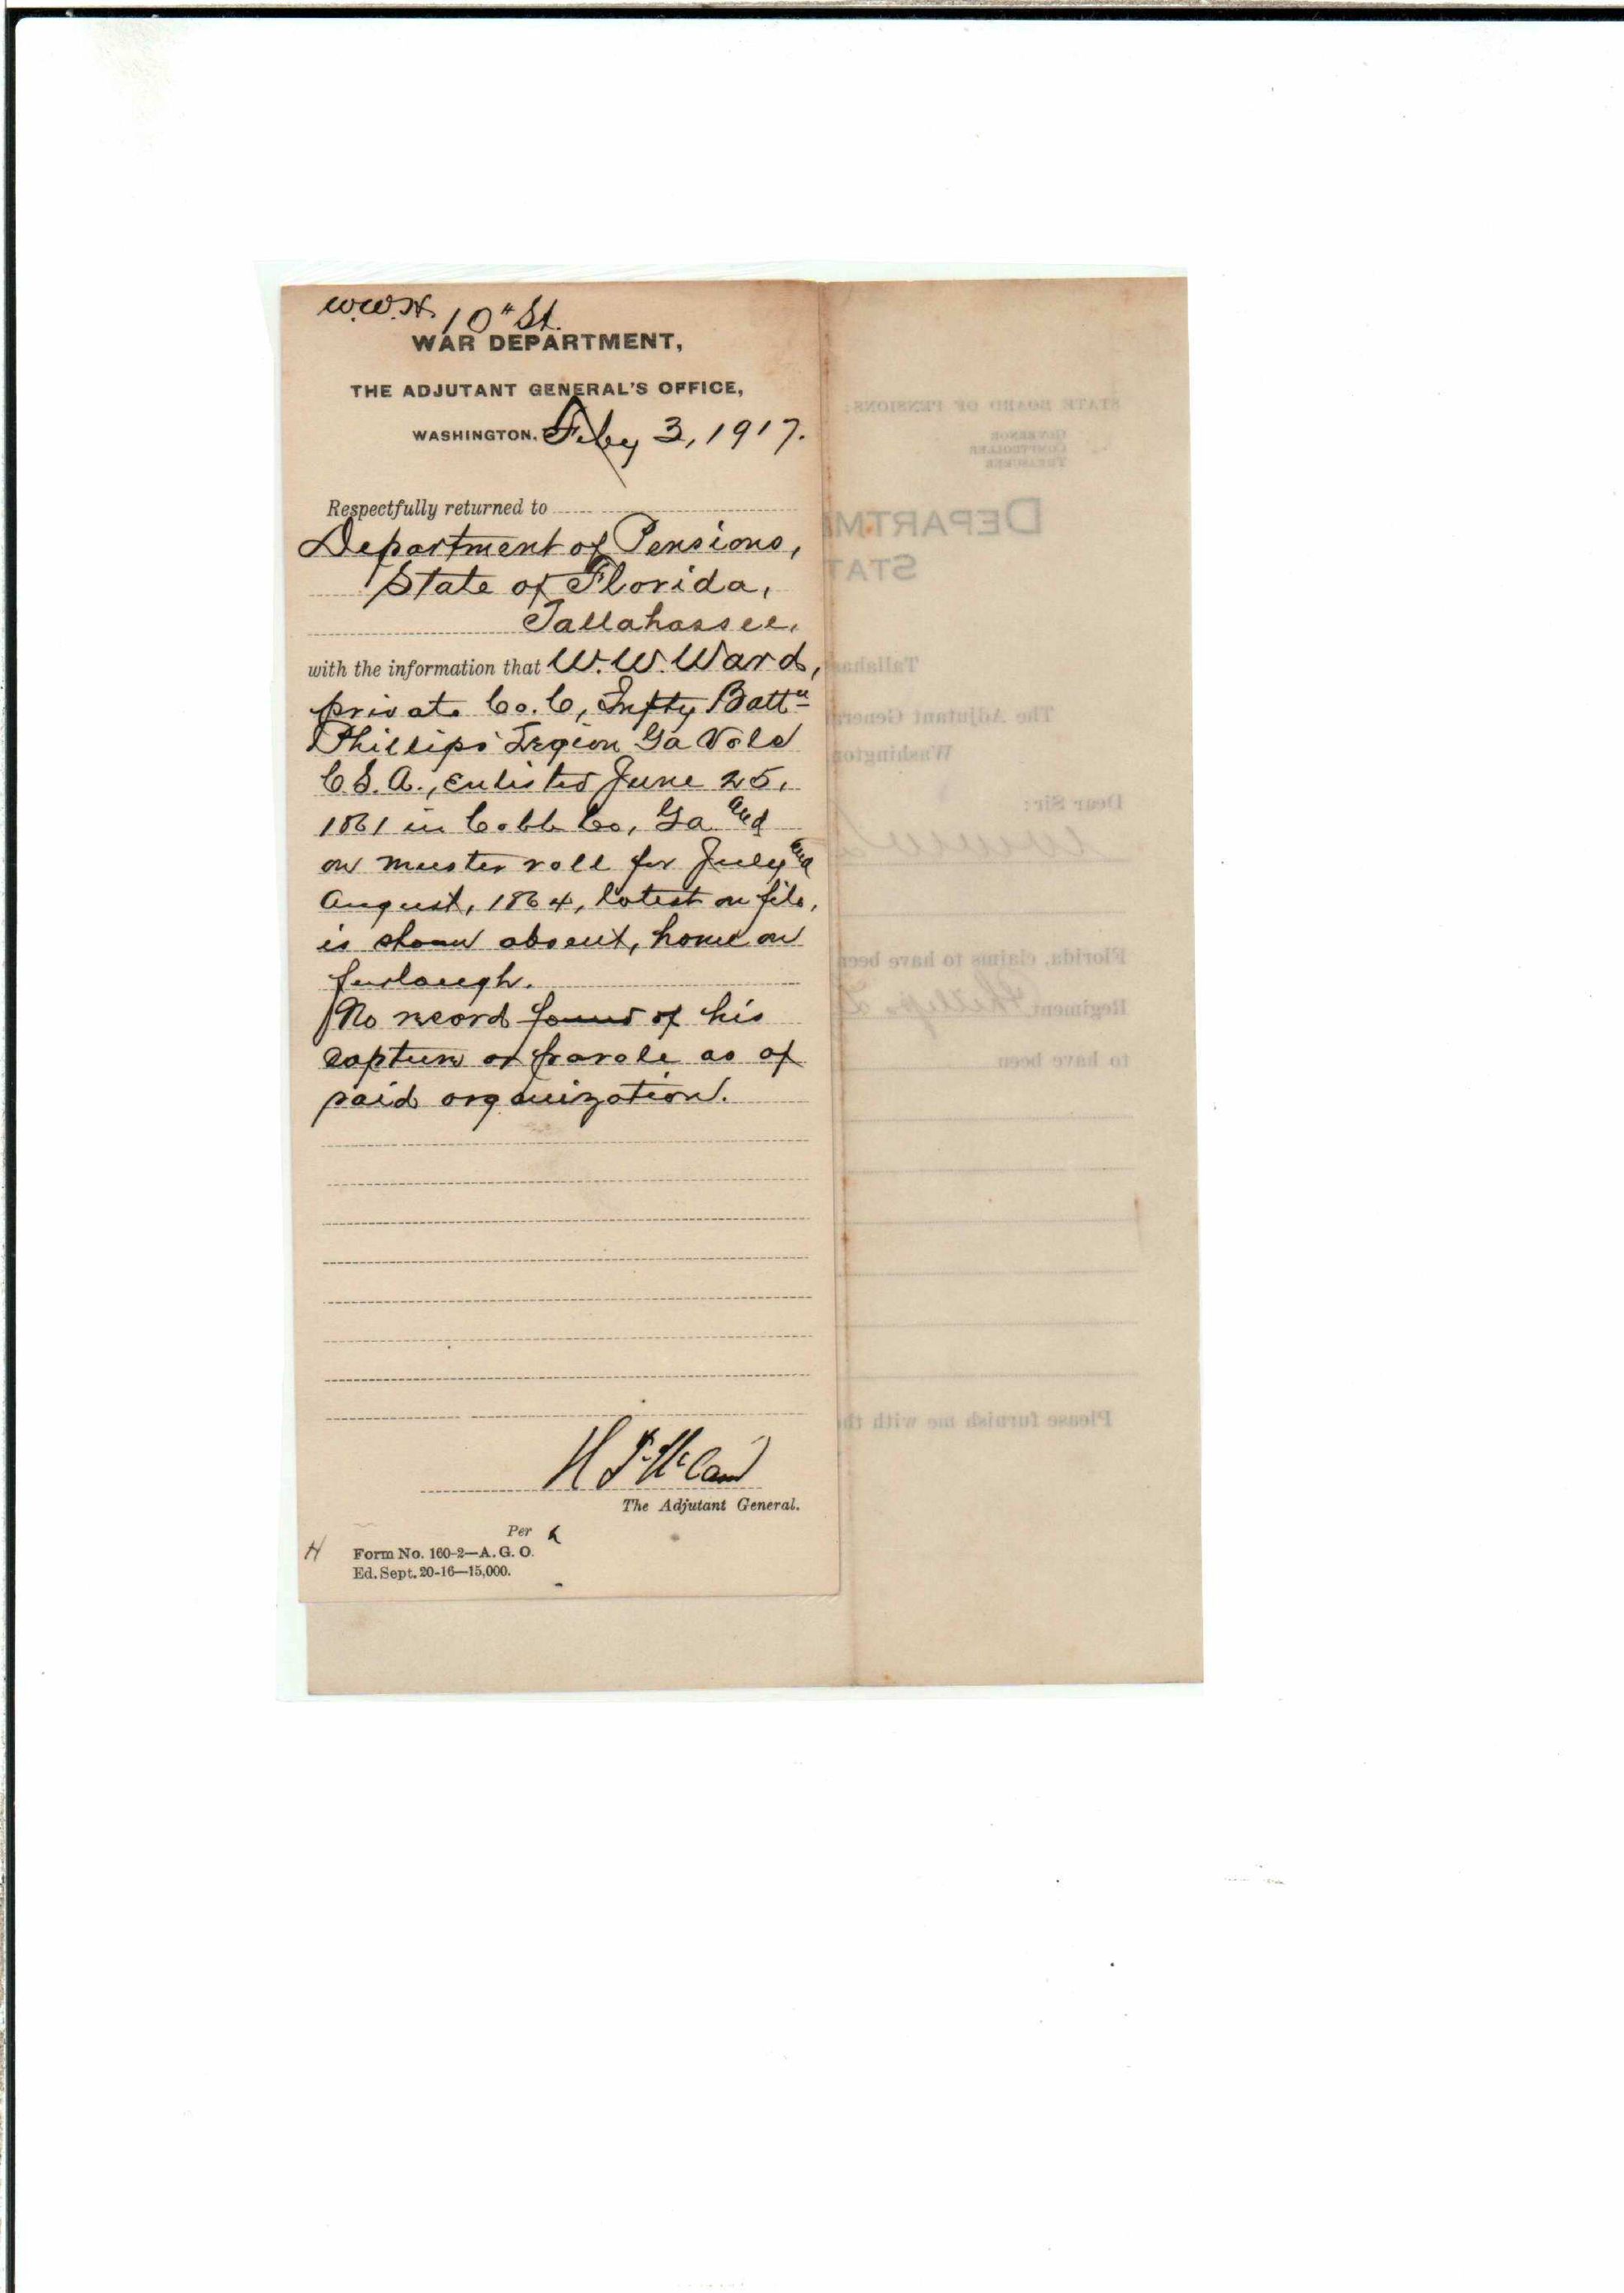 W.W.H. 10" St.
WAR DEPARTMENT,
THE ADJUTANT GENERAL'S OFFICE,
WASHINGTON, Feby 3, 1917.
Respectfully returned to
Department of Pensions,
State of Florida,
Tallahassee,
with the information that W. W. Ward,
private Co. C, Infty Battn
Phillips' Legion Ga Vols
C.S.A., enlisted June 25,
1861 in Cobb Co, Ga and
on muster roll for July and
August, 1864, latest on file,
is shown absent, home on
furlough.
No record found of his
capture or parole as of
said organization.
The Adjutant General.
Per
H Form No. 160-2—A. G. O.
Ed. Sept. 20-16—15,000.
STATE BOARD OF PENSIONS:
GOVERNOR
COMPTROLLER
TREASURER
DEPARTM
STAT
Tallahas
The Adjutant Genera
Washington
Dear Sir:
Florida, claims to have been
Regiment Phillips L
to have been
Please furnish me with th